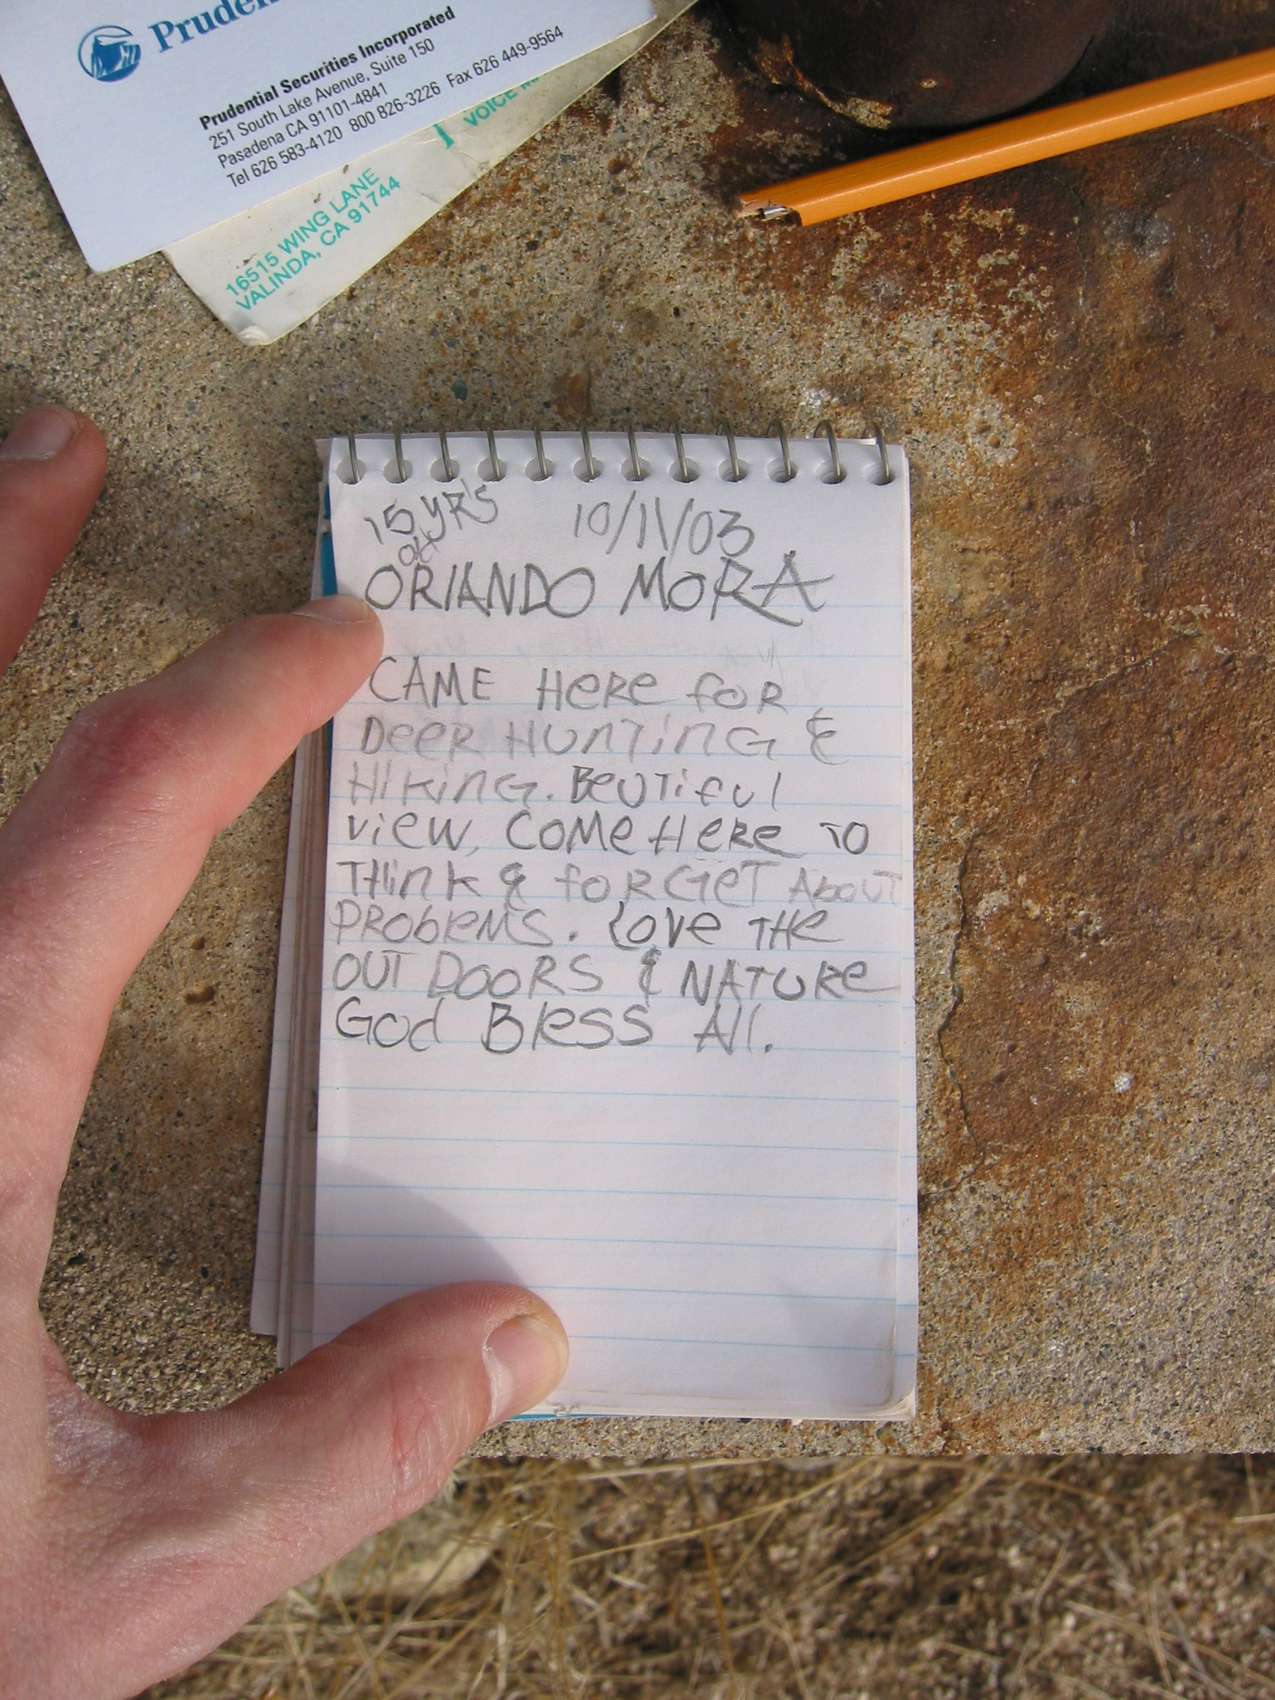 Pruden
Prudential Securities Incorporated
251 South Lake Avenue, Suite 150
Pasadena CA 91101-4841
Tel 626 583-4120 800 826-3226 Fax 626 449-9564
VOICE
16515 WING LANE
VALINDA, CA 91744
15 YR'S 10/11/03
old
ORlANDO MORA
CAME HeRe foR
DeeR HUNTinG &
HiKinG. BeUTiful
View, COMe HeRe TO
THinK & foRGeT AboUT
PRobleMS. Love THe
OUT DOORS & NATURe
God Bless All.